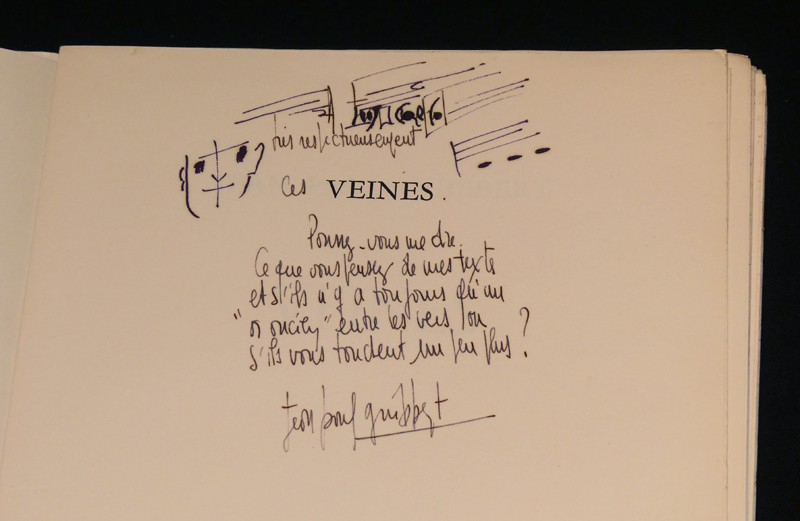 très respectueusement
Ces VEINES.
Pouvez-vous me dire
Ce que vous pensez de mes textes
et s'ils n'y a toujours qu'un
" entre les vers, ou
s'ils vous touchent un peu plus ?
jean paul guibbert